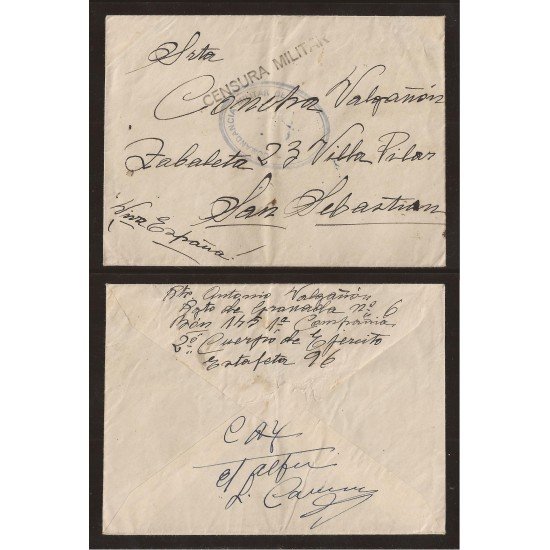 Srta
CENSURA MILITAR
Concha Valgañón
COMANDANCIA MILITAR DE
Zabaleta 23 Villa Pilar
San Sebastian
¡Viva España!
Rte Antonio Valgañón
Rgto de Granada nº 6
Bón 145 1ª Compañia
2º Cuerpo de Ejército
Estafeta 96
El alfez